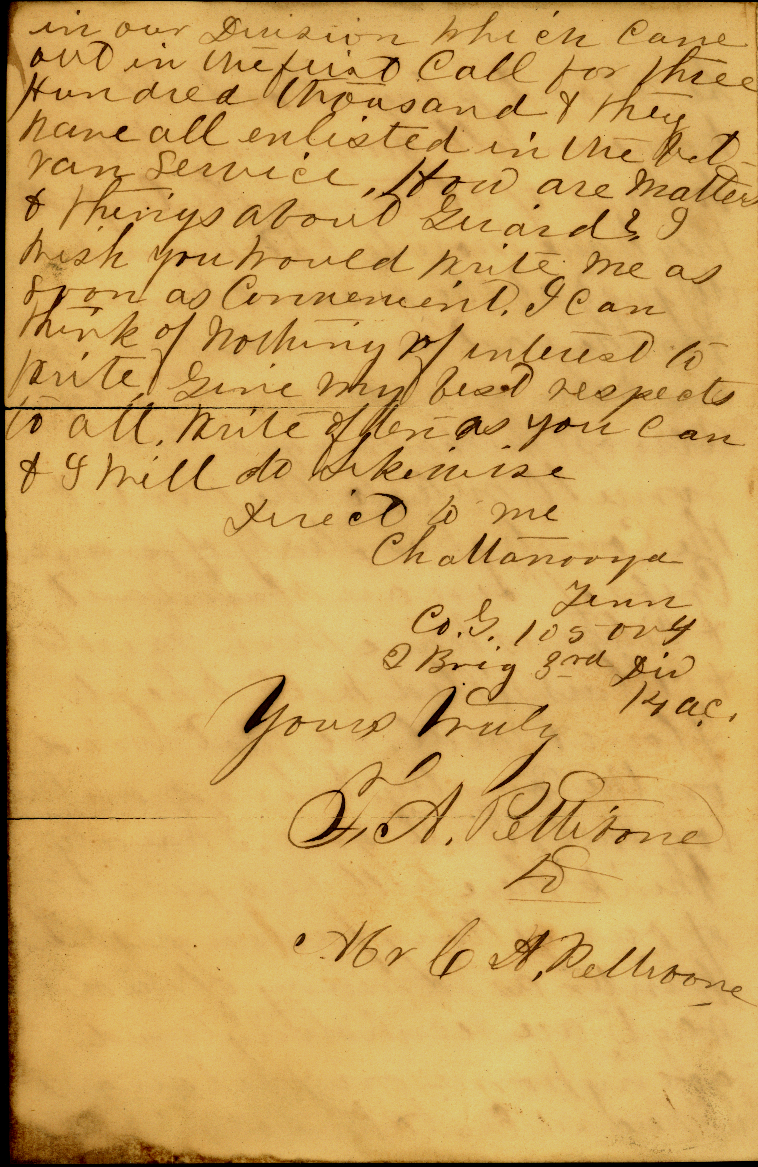 in our Division which came
out in the first Call for three
Hundred thousand & they
have all enlisted in the vet-
ran Service. How are matters
& things about Girard? I
wish you would write me as
soon as Convenient. I can
think of nothing of interest to
write, Give my best respects
to all. Write often as you can
& I will do likewise
Direct to me
Chattanooga
Tenn
Co. G. 105 OVI
2 Brig 3rd Div
14 A.C.
Yours Truly
F. A. Pettibone
to
Mr C A. Pettibone